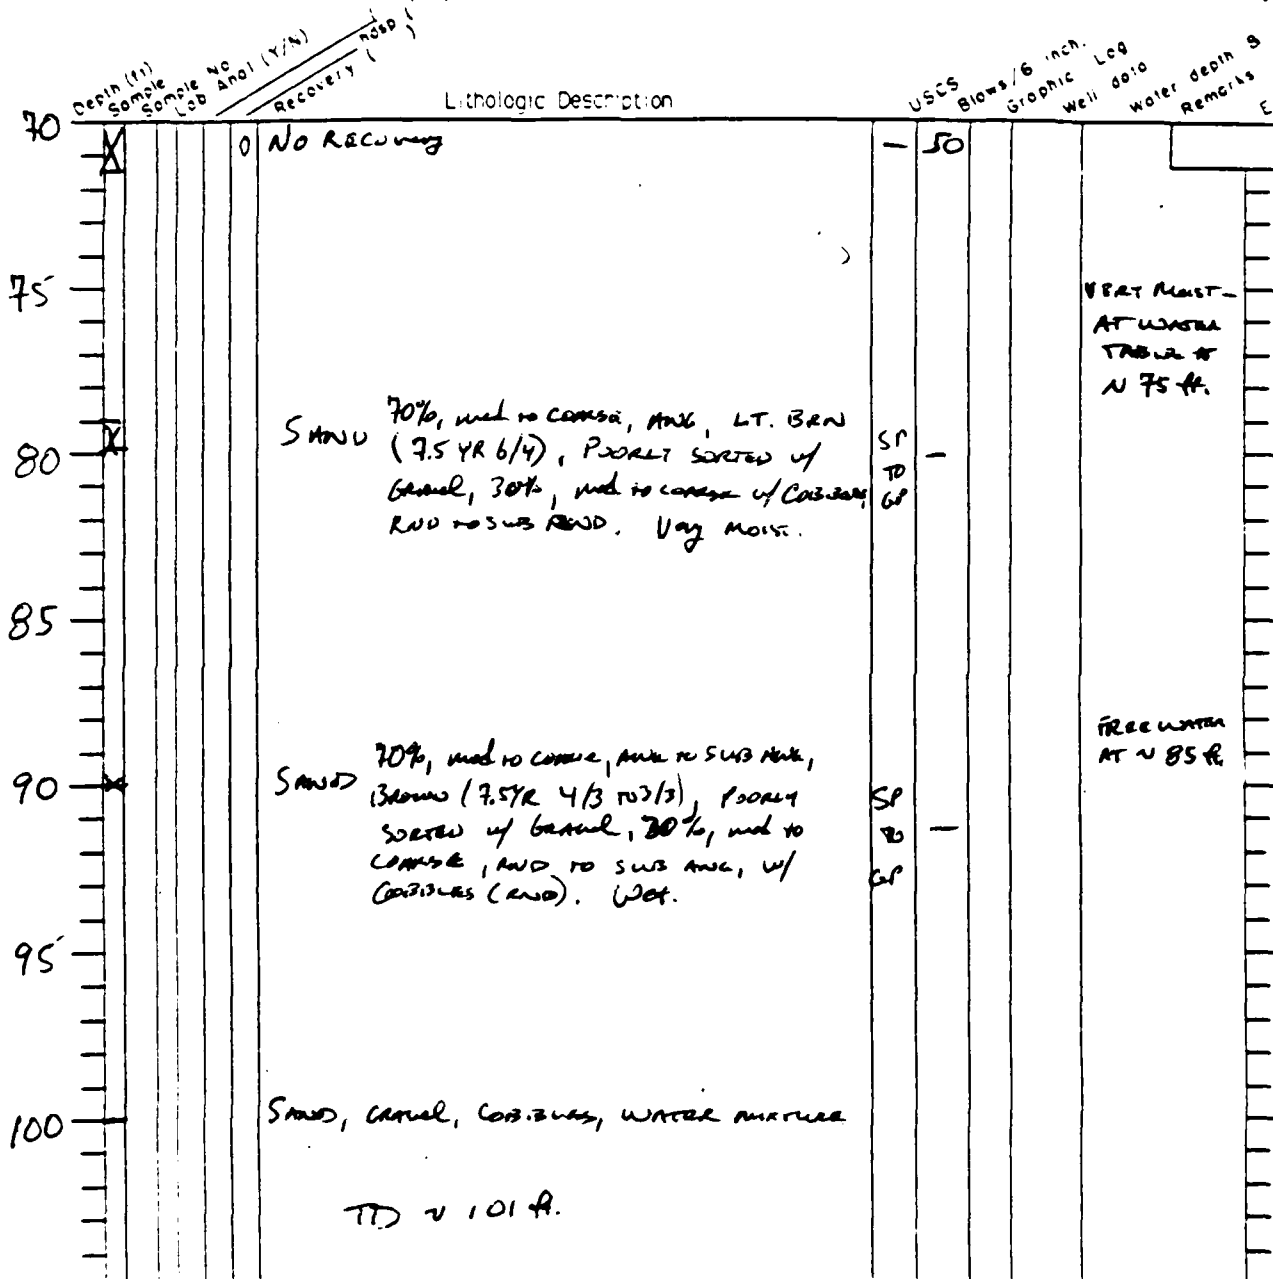 Depth (ft)
Sample
Sample No
Lab Anal (Y/N)
Recovery (
hdsp (
)
Lithologic Description
USCS
Blows/6 inch.
Graphic Log
Well data
Water depth &
Remarks
E
70
0 No Recovery — 50
75
VERY MOIST -
AT WATER
TABLE
~ 75 ft.
80
SAND 70%, med to coarse, ANG, LT. BRN
(7.5 YR 6/4), POORLY SORTED w/
Gravel, 30%, med to coarse w/ Cobbles,
RND to SUB RND. Very Moist.
SP
TO
GP
—
85
FREE WATER
AT ~ 85 ft.
90
SAND 70%, med to coarse, ANG to SUB ANG,
BROWN (7.5YR 4/3 TO 3/3), POORLY
SORTED w/ Gravel, 30%, med to
COARSE, RND TO SUB ANG, w/
COBBLES (RND). Wet.
SP
TO
GP
—
95
100
SAND, GRAVEL, COBBLES, WATER MIXTURE
TD ~ 101 ft.